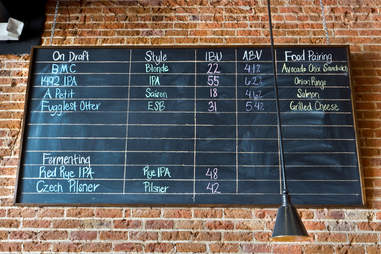 On Draft Style IBU ABV Food Pairing
BMC Blonde 22 4.12
1492 IPA IPA 55 Onion Rings
A Petit Saison 18 4.62 Salmon
Fugglest Otter ESB 31 5.42 Grilled Cheese
Fermenting
Red Rye IPA Rye IPA 48
Czech Pilsner Pilsner 42